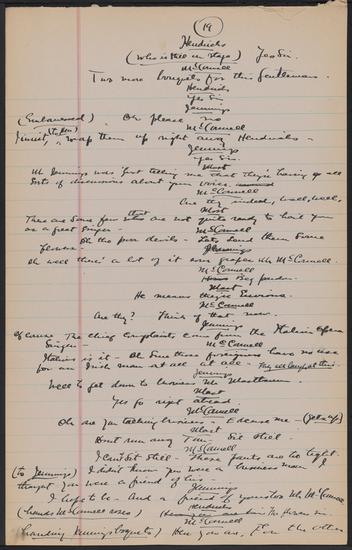 19
Hendricks
(Who is still on stage) Yes Sir.
McConnell
Two more bouquets for this gentleman.
Hendricks
Yes Sir
Jennings
(Embarrassed) Oh please no
McConnell
wrap them up right away Hendricks -
Jennings
Yes Sir.
Most
Mr Jennings was just telling me that they're having up all
sorts of discussions about your voice.
McConnell
Are they indeed, well, well,
Most
There are some few that are not quite ready to hail you
as a great singer -
McConnell
Oh the poor devils - Lets send them some
flowers -
Jennings
Oh well there's a lot of it sour grapes Mr McConnell.
McConnell
Beg pardon.
Most
He means they're Envious.
McConnell
Are they? Think of that now.
Jennings
Of course the chief complaints come from the Italian Opera
Singers -
McConnell
Italians is it - Oh Sure those foreigners have no use
for an Irish man at all at all -
Jennings
Well to get down to business Mr
Most
Yes go right ahead.
McConnell
Oh are you talking business - Excuse me - (gets up)
Most
Dont run away Tom - Sit still -
McConnell
I can't sit still - These pants are too tight.
(to Jennings) I didn't know you were a business man I
thought you were a friend of his -
Jennings
I hope to be - And a friend of yours too Mr McConnell
(hands McConnell roses)
Hendricks
McConnell
(handing Jennings boquets) Here you are, Ean the other